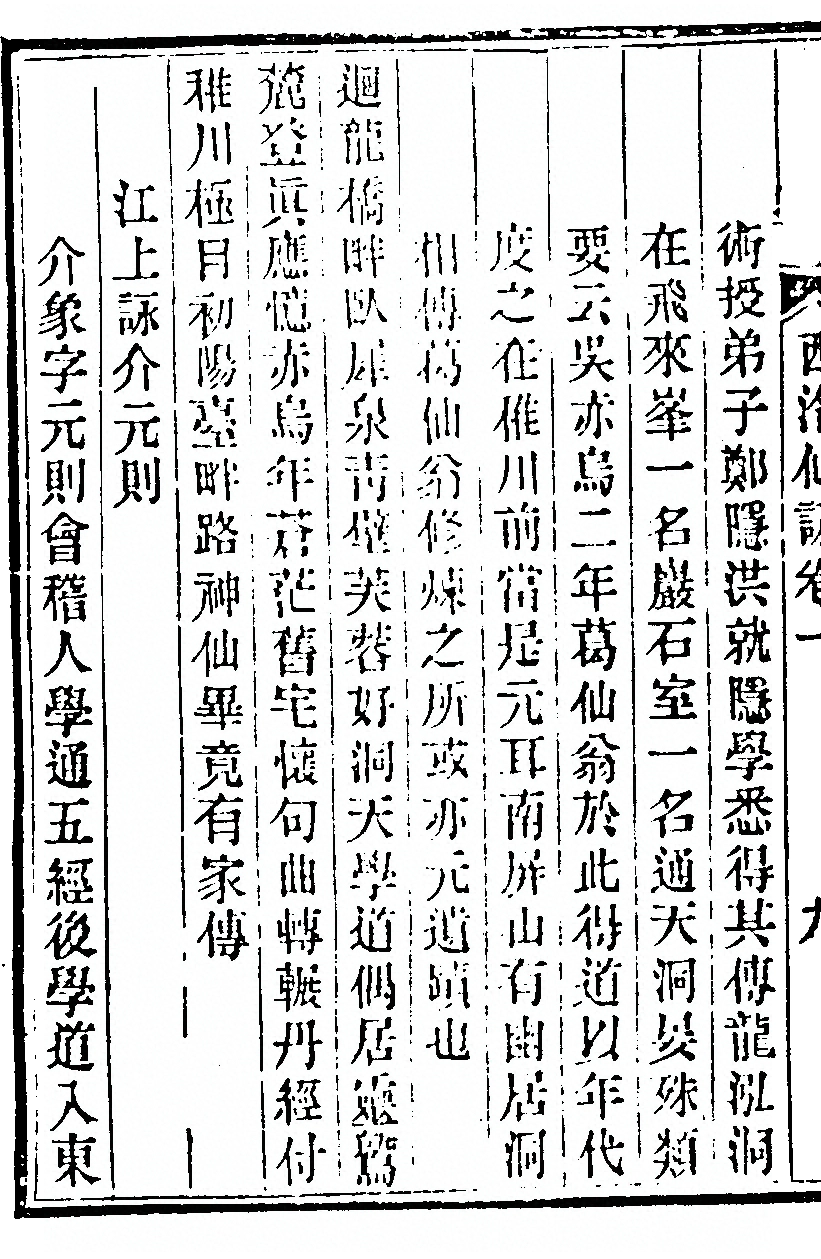 西泠仙詠卷一 九
術授弟子鄭隱洪就隱學悉得其傳龍泓洞
在飛來峯一名巖石室一名通天洞晏殊類
要云吳赤烏二年葛仙翁於此得道以年代
度之在稚川前當是元耳南屏山有幽居洞
相傳葛仙翁修煉之所或亦元遺蹟也
迴龍橋畔臥犀泉青壁芙蓉好洞天學道偶居
登眞應憶赤烏年蒼茫舊宅懷句曲轉輾丹經付
稚川極目初陽臺畔路神仙畢竟有家傳
江上詠介元則
介象字元則會稽人學通五經後學道入東